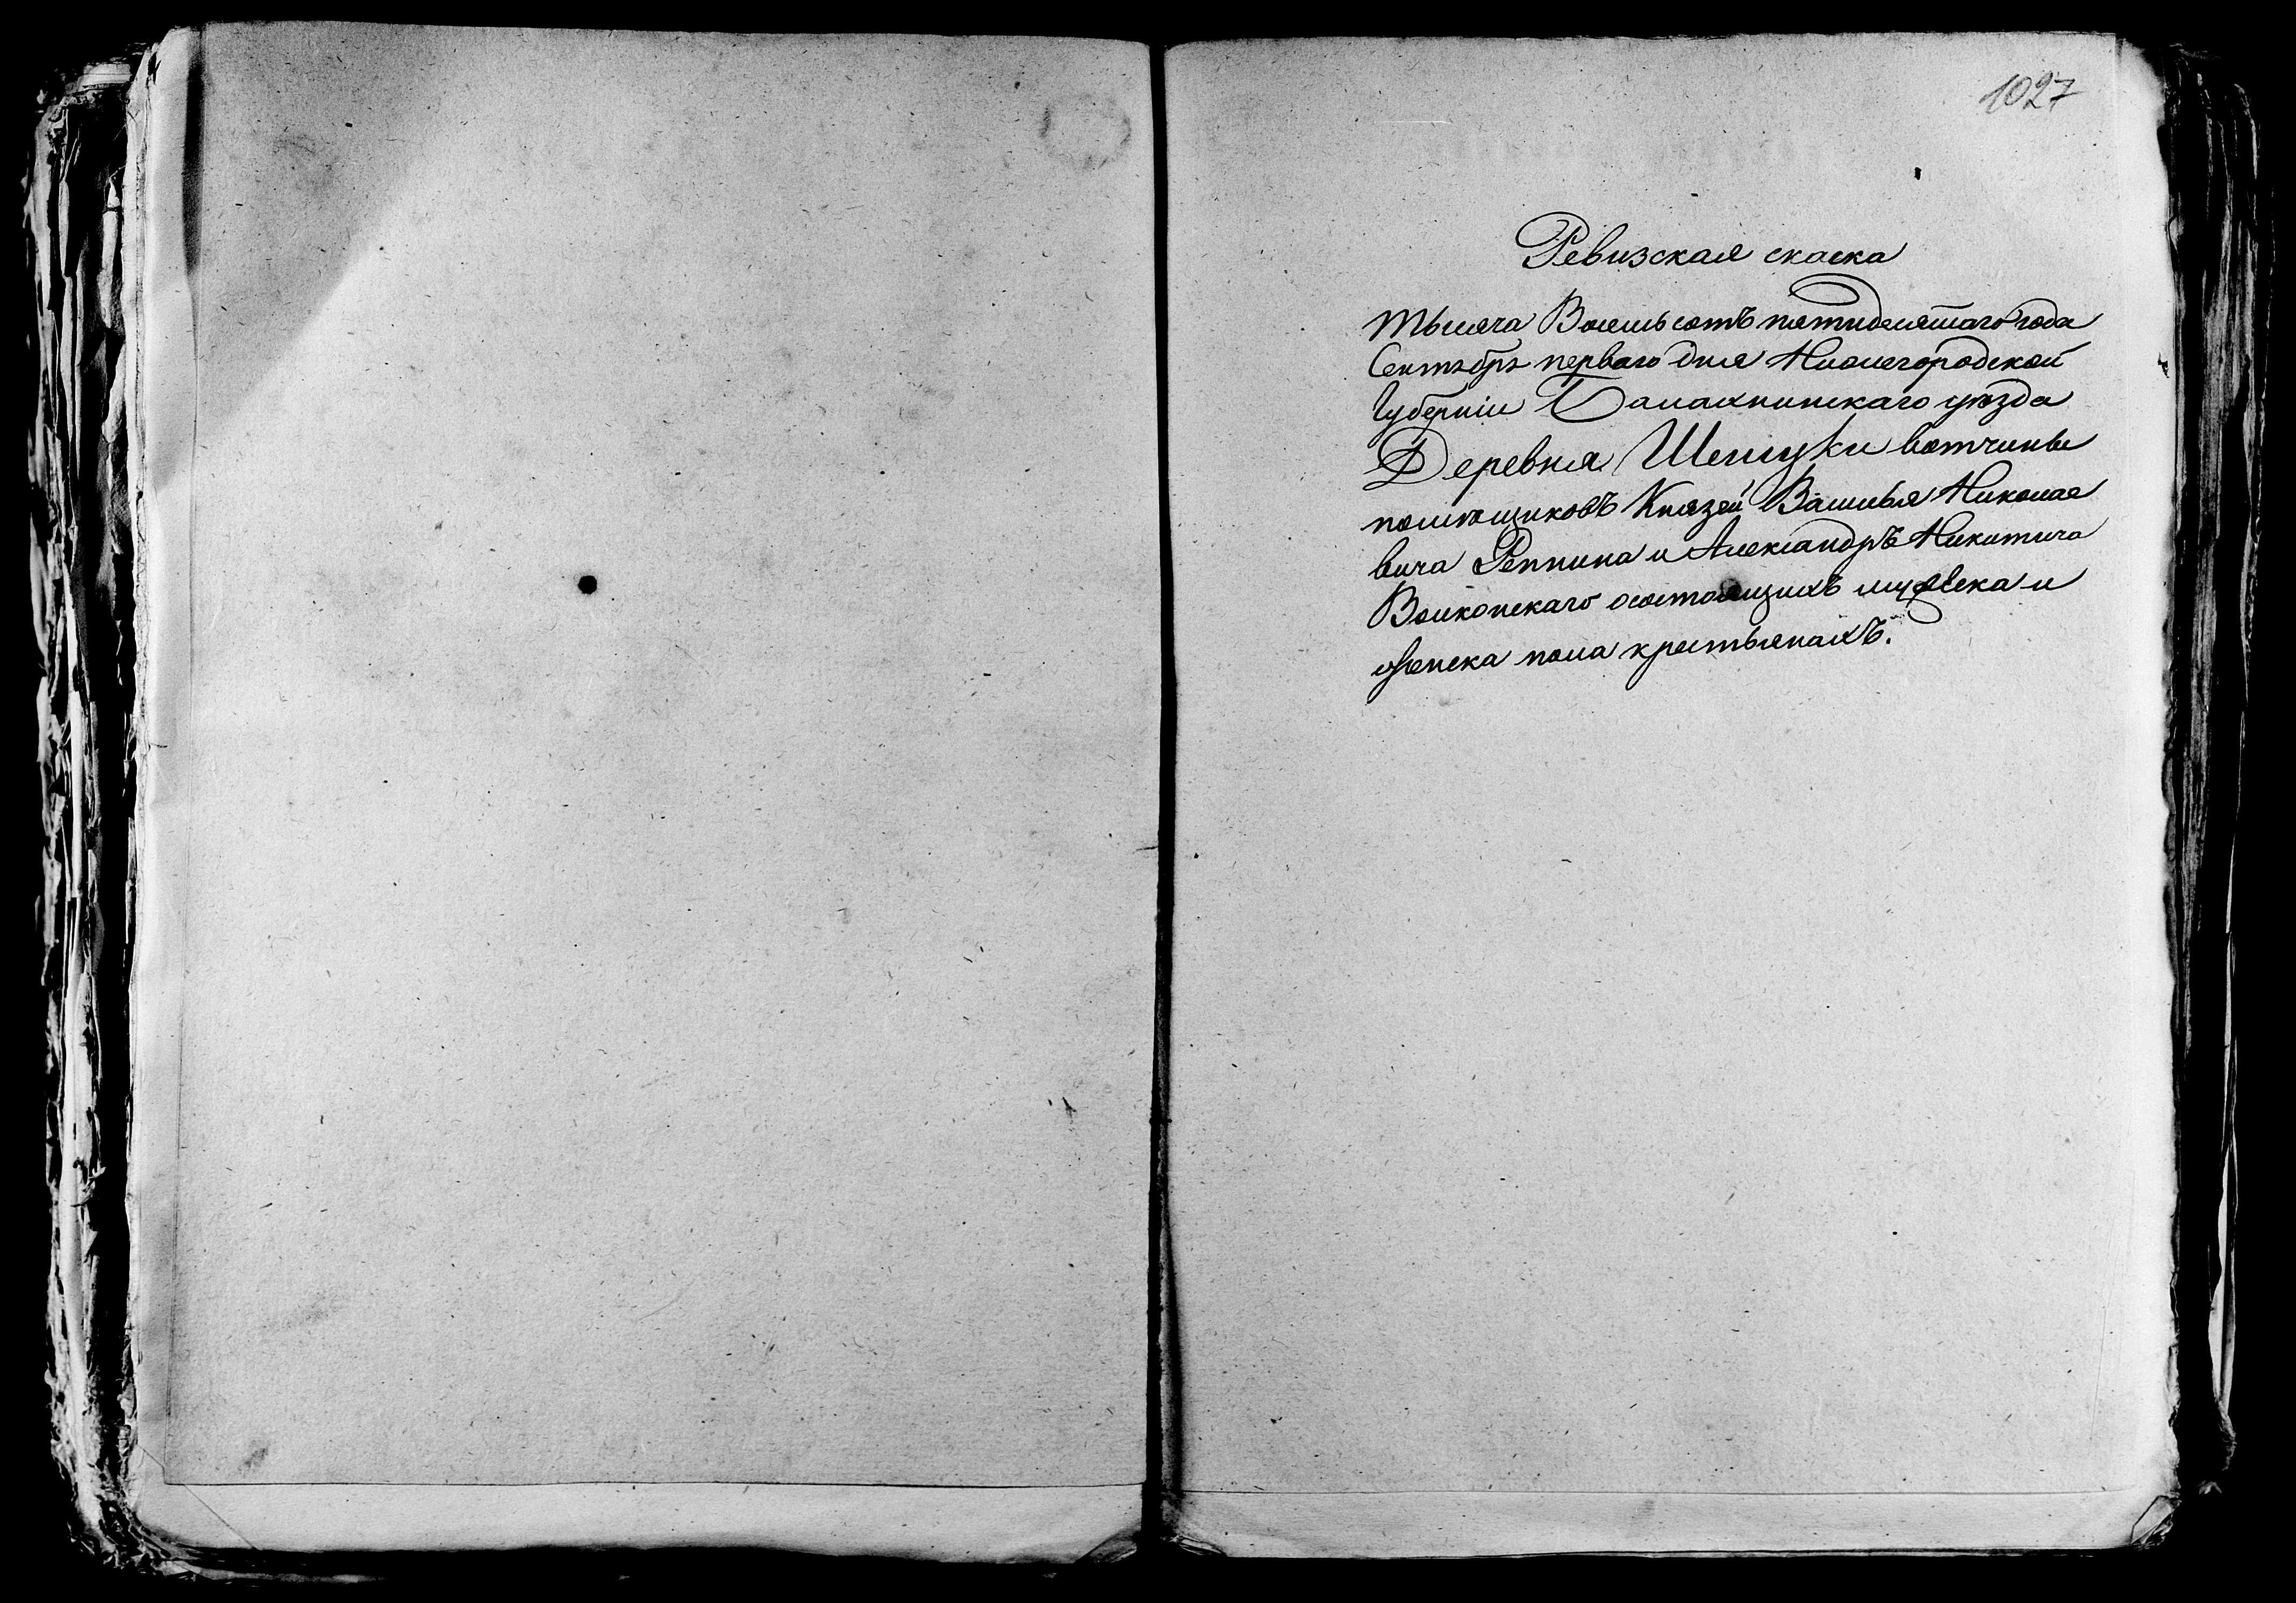 1027
Ревизская скаска
тысяча Восемьсотъ пятидесятаго года
Сентября перваго дня Нижегородской
Губерніи Балахнинскаго уезда
Деревня Шешуки вотчины
помѣщиковъ Князей Василья Николае
вича Репнина и Александръ Никитича
Волконскаго осостоящихъ мужеска и
женска пола крестьянахъ.